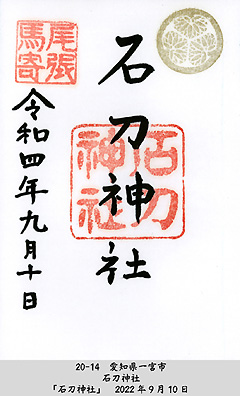 尾張
馬寄
石刀神社
石刀
神社
令和四年九月十日
20-14 愛知県一宮市
石刀神社
「石刀神社」 2022年9月10日